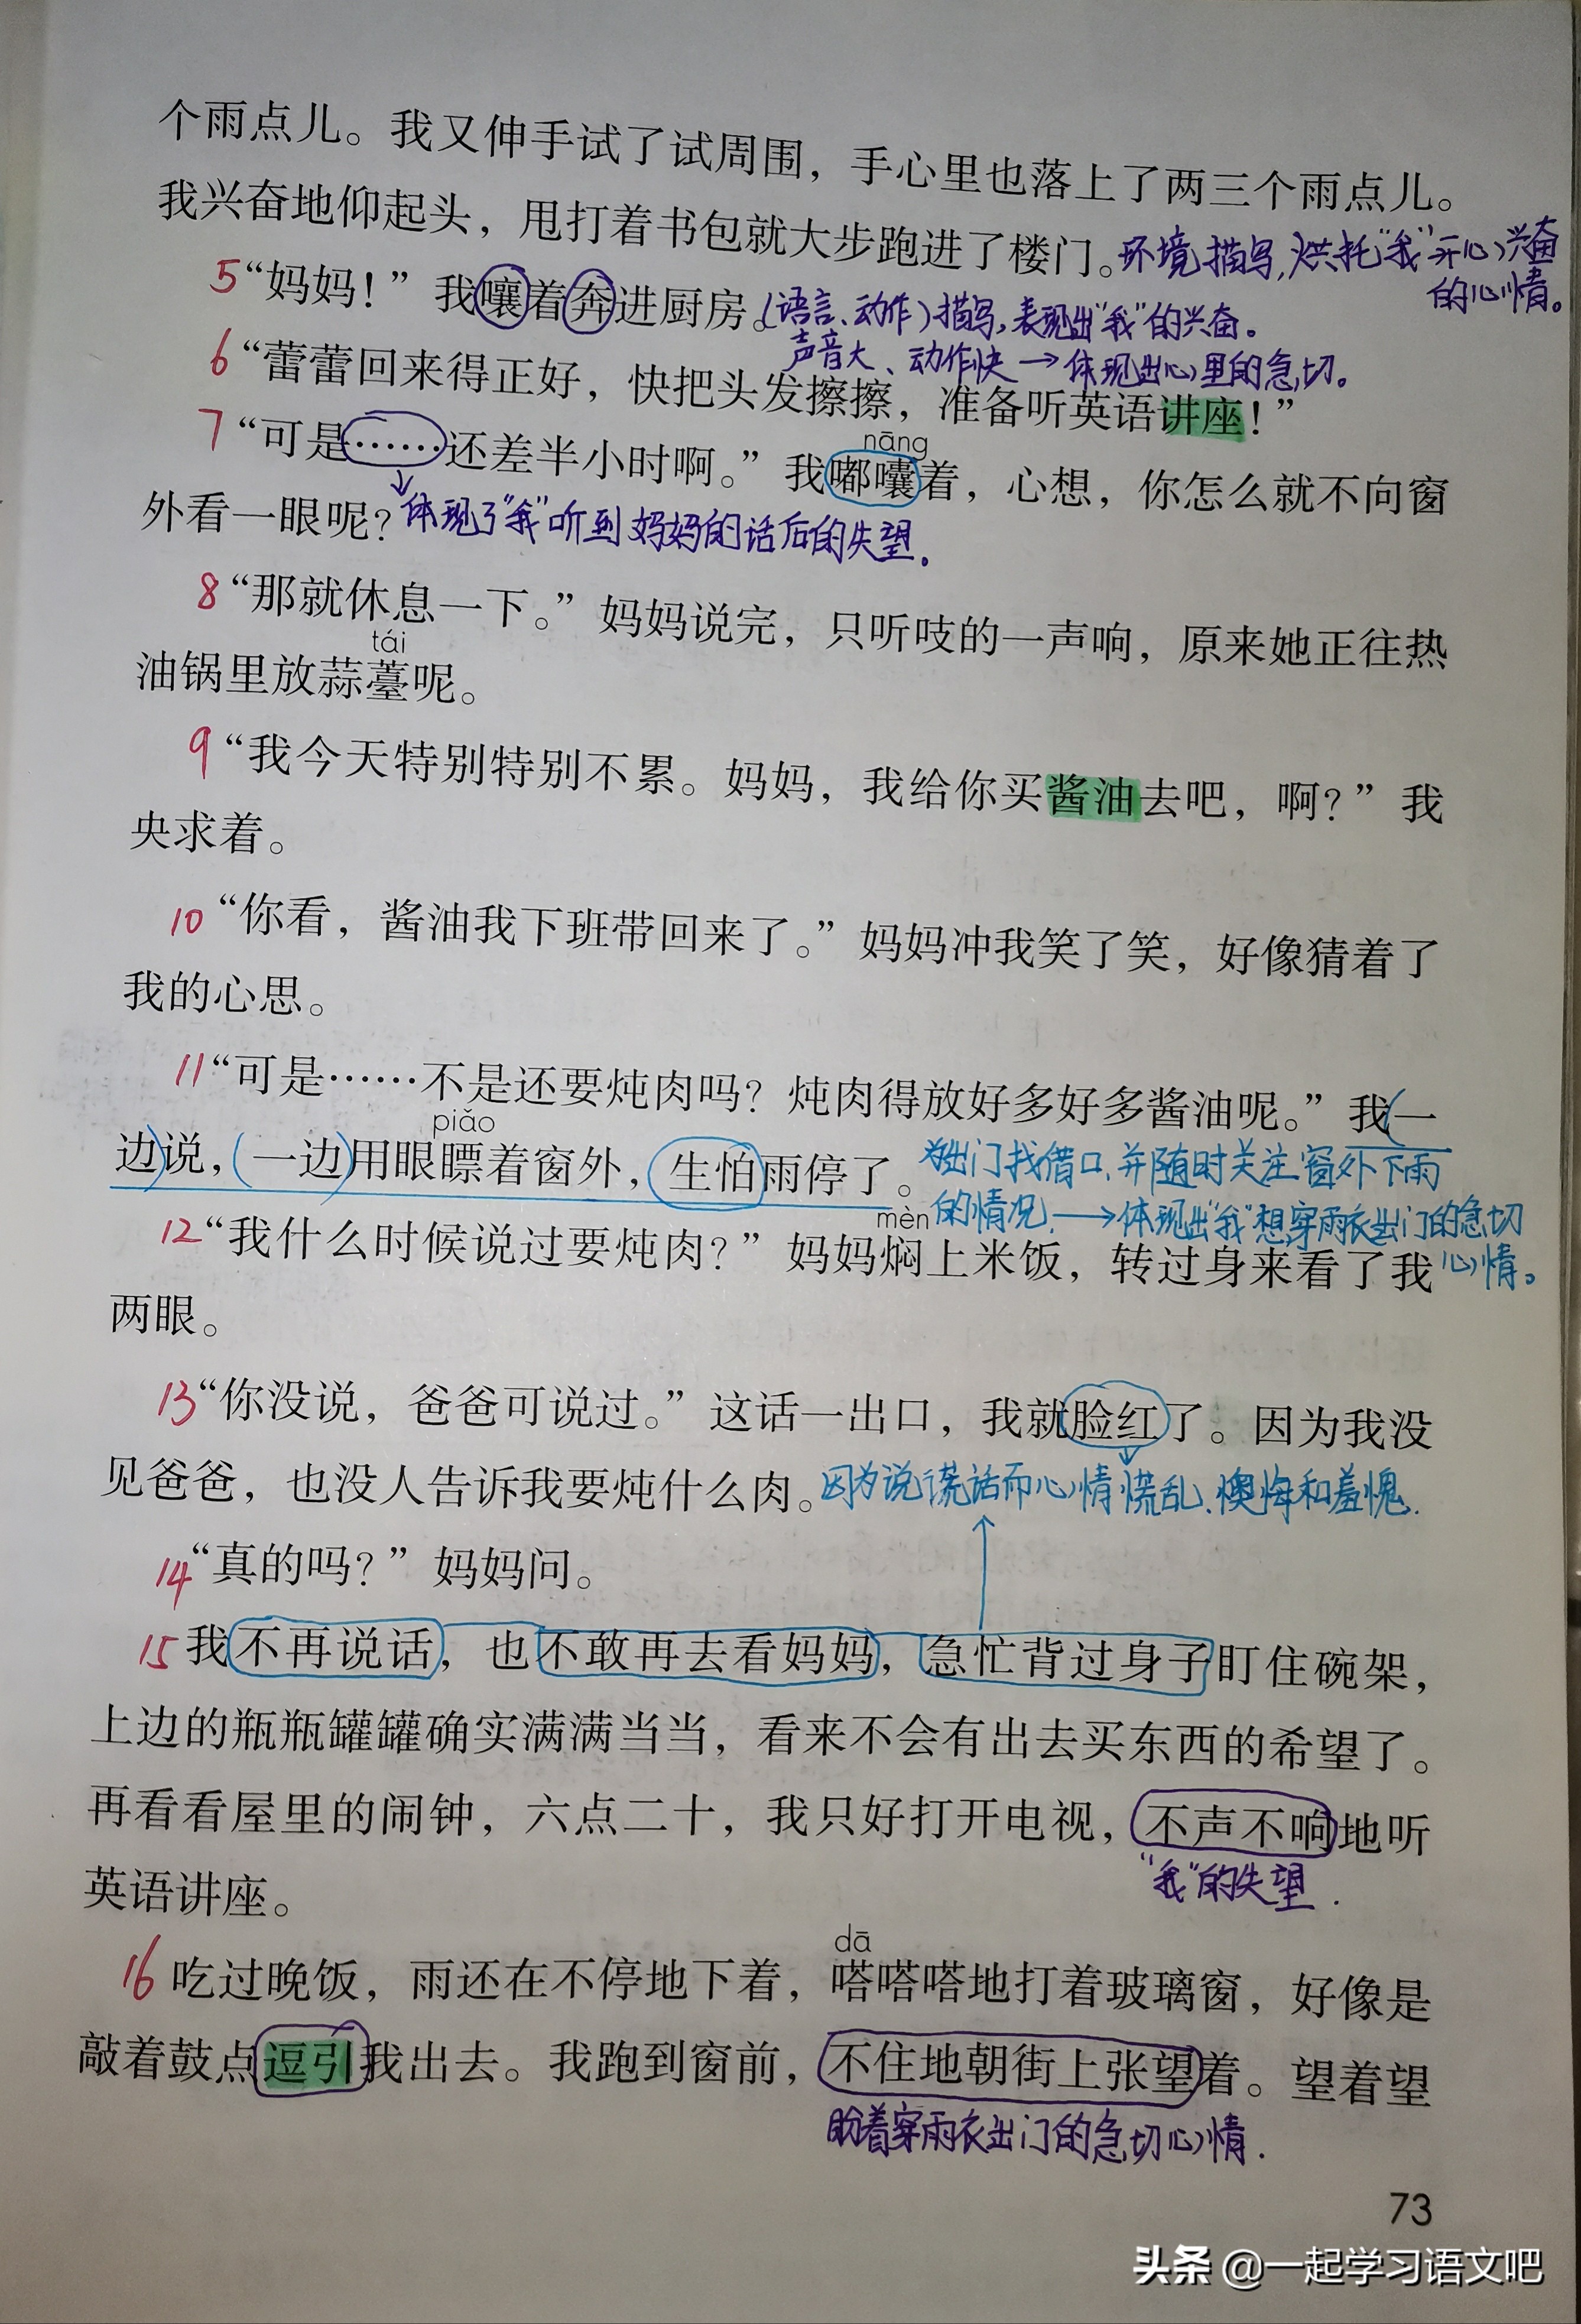 个雨点儿。我又伸手试了试周围，手心里也落上了两三个雨点儿。
我兴奋地仰起头，甩打着书包就大步跑进了楼门。环境描写，烘托“我”开心、兴奋
的心情。
5“妈妈！”我嚷着奔进厨房。（语言、动作）描写，表现出“我”的兴奋。
声音大、动作快→体现出心里的急切。
6“蕾蕾回来得正好，快把头发擦擦，准备听英语讲座！”
nāng
7“可是……还差半小时啊。”我嘟囔着，心想，你怎么就不向窗
外看一眼呢？体现了“我”听到妈妈的话后的失望。
8“那就休息一下。”妈妈说完，只听吱的一声响，原来她正往热
tái
油锅里放蒜薹呢。
9“我今天特别特别不累。妈妈，我给你买酱油去吧，啊？”我
央求着。
10“你看，酱油我下班带回来了。”妈妈冲我笑了笑，好像猜着了
我的心思。
11“可是……不是还要炖肉吗？炖肉得放好多好多酱油呢。”我（一
piǎo
边）说，（一边）用眼瞟着窗外，生怕雨停了。为出门找借口，并随时关注窗外下雨
的情况→体现出“我”想穿雨衣出门的急切
心情。
mèn
12“我什么时候说过要炖肉？”妈妈焖上米饭，转过身来看了我
两眼。
13“你没说，爸爸可说过。”这话一出口，我就脸红了。因为我没
见爸爸，也没人告诉我要炖什么肉。因为说谎话而心情慌乱、懊悔和羞愧.
14“真的吗？”妈妈问。
15我不再说话，也不敢再去看妈妈，急忙背过身子盯住碗架，
上边的瓶瓶罐罐确实满满当当，看来不会有出去买东西的希望了。
再看看屋里的闹钟，六点二十，我只好打开电视，不声不响地听
“我”的失望.
英语讲座。
dā
16吃过晚饭，雨还在不停地下着，嗒嗒嗒地打着玻璃窗，好像是
敲着鼓点逗引我出去。我跑到窗前，不住地朝街上张望着。望着望
盼着穿雨衣出门的急切心情.
73
头条 @一起学习语文吧